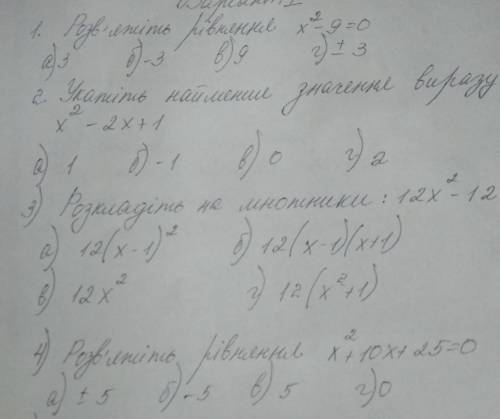 Варіант 1
1. Розв'яжіть рівняння x²-9=0
а) 3 б) -3 в) 9 г) ± 3
2. Укажіть найменше значення виразу
x² - 2x + 1
а) 1 б) -1 в) 0 г) 2
3) Розкладіть на множники: 12x² - 12
а) 12(x-1)² б) 12(x-1)(x+1)
в) 12x² г) 12(x²+1)
4) Розв'яжіть рівняння x²+10x+25=0
а) ± 5 б) -5 в) 5 г) 0